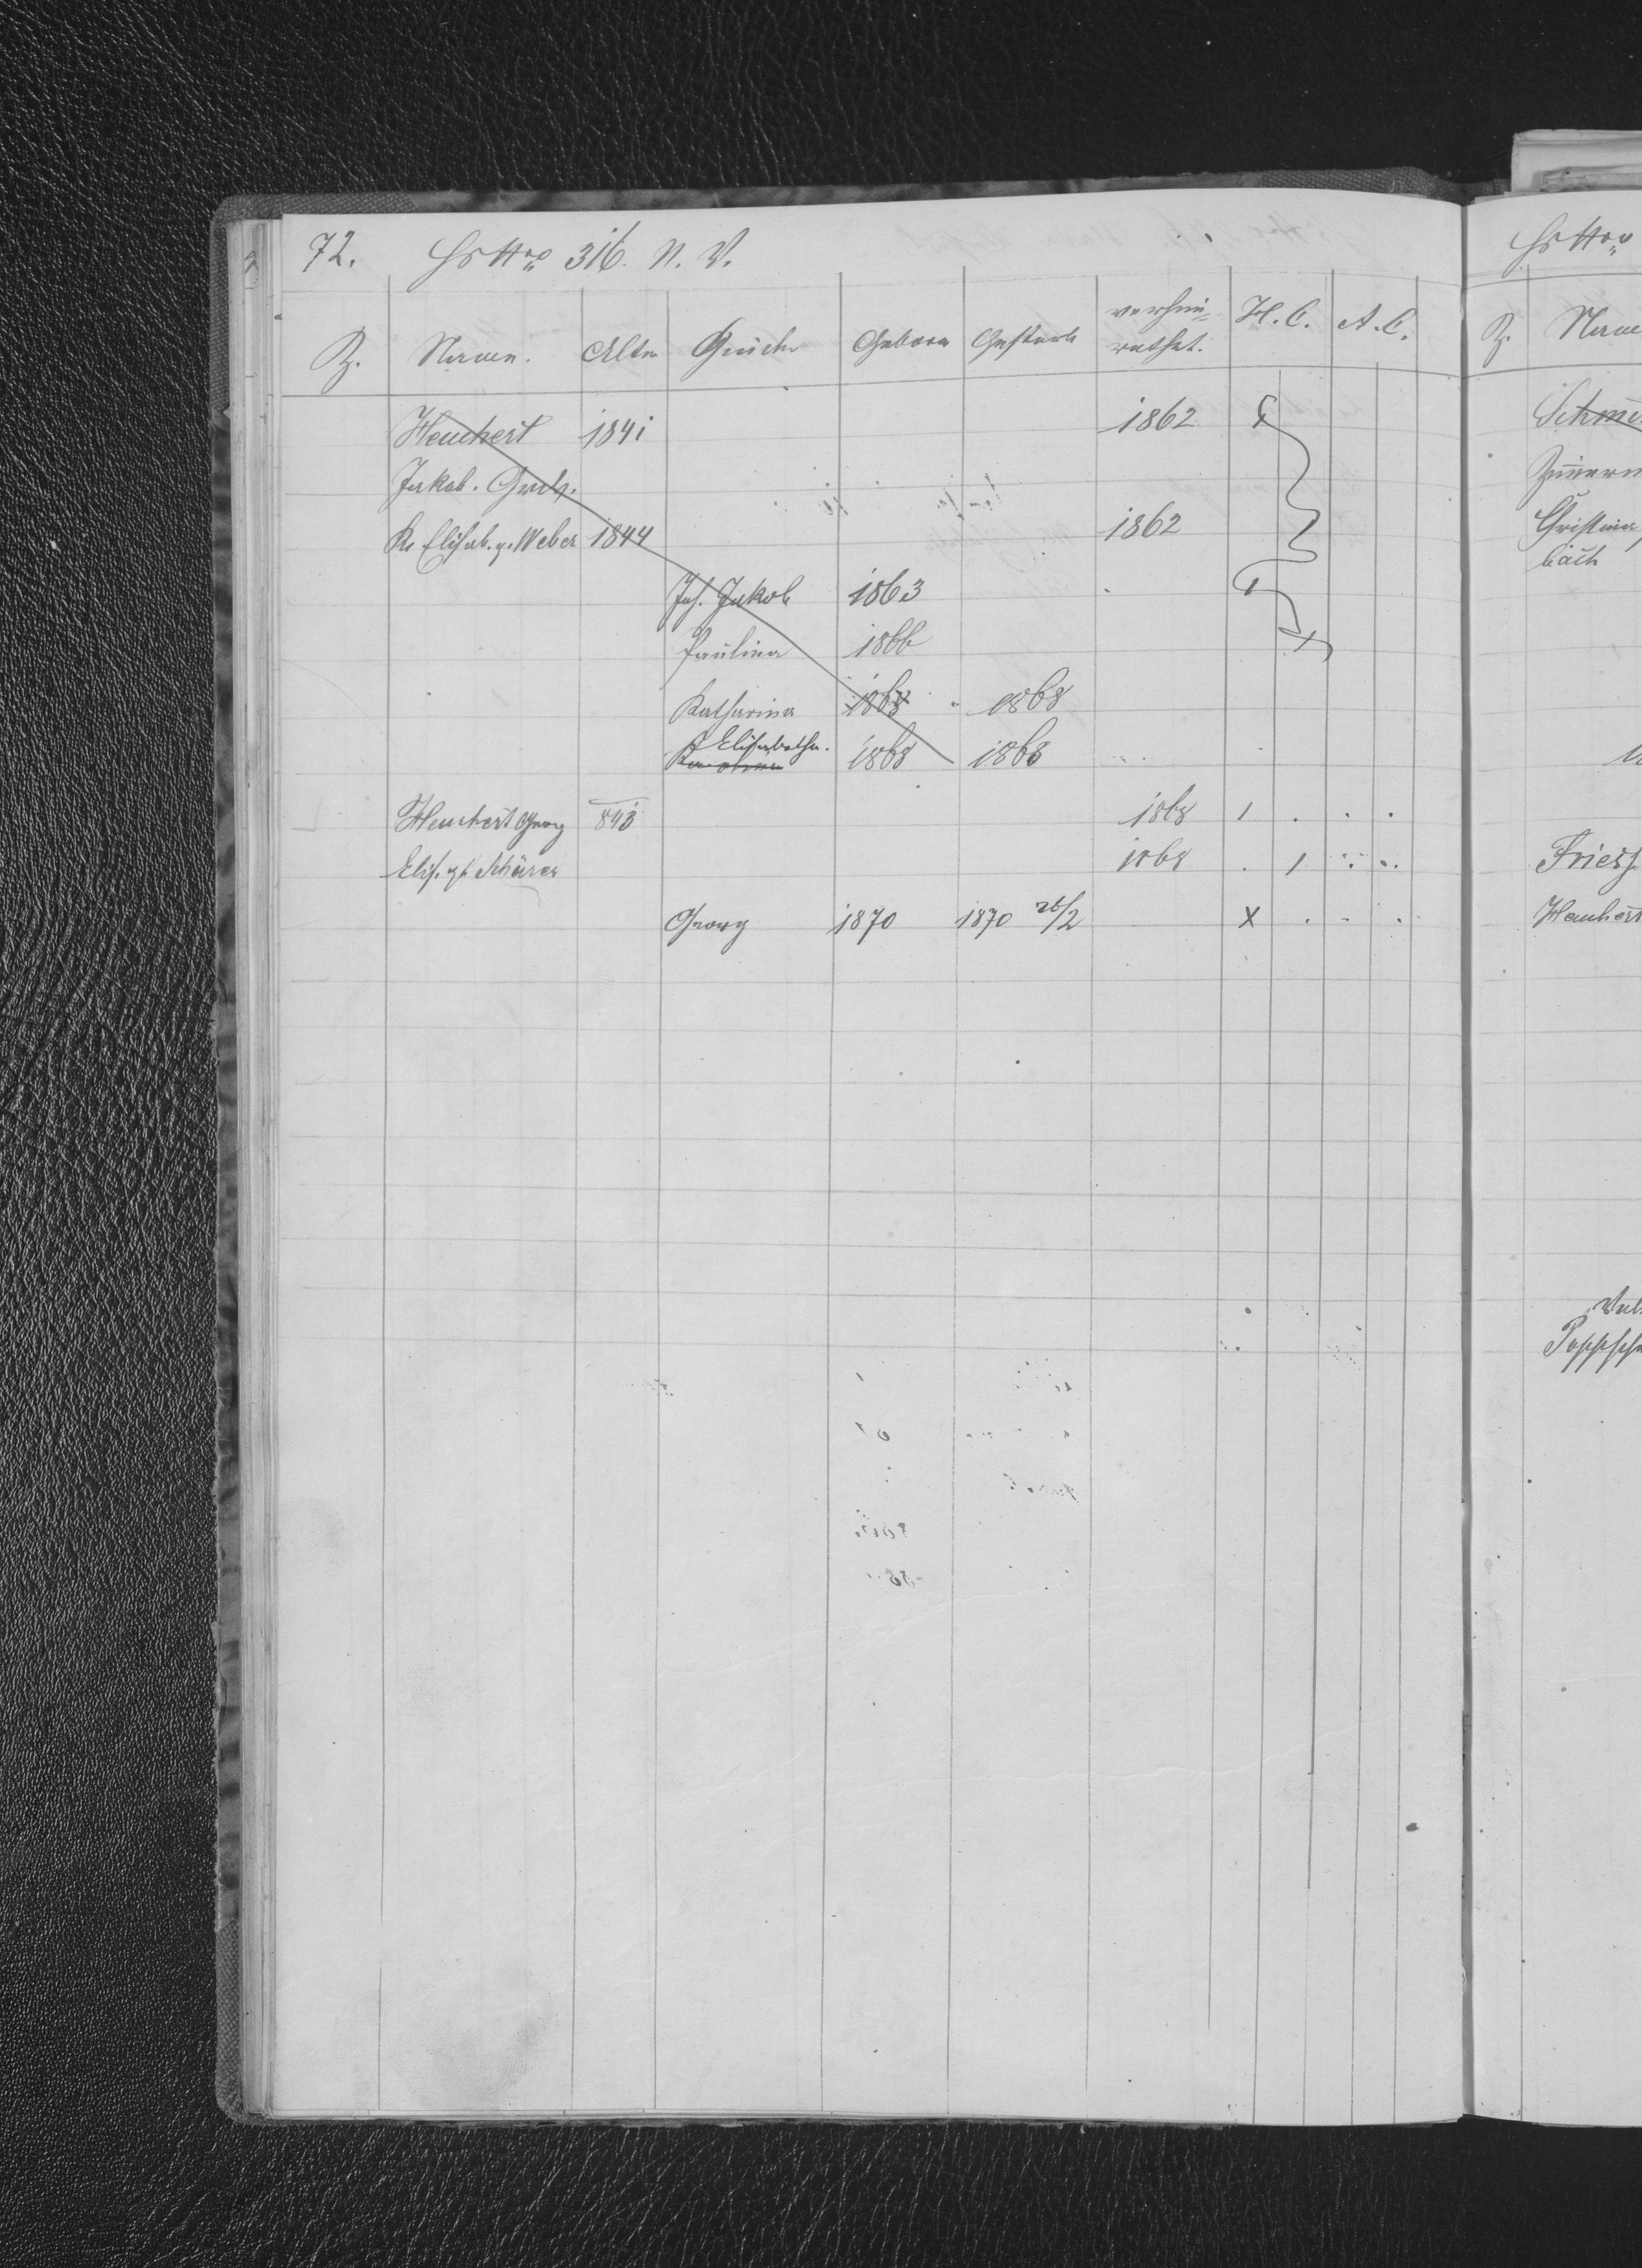 72. Hs Nro 316. N. V.
Z. Namen. Alter Geschr Geboren Gestorb verhei= rathet. H. C. A. C.
Heuchert 1841 1862
Jakob. Gerb.
Fr Elisab. g. Weber 1844 1862
Joh. Jakob 1863
Paulina 1866
Katharina 1868 1868
Elisabetha. 1868 1868
Heuchert Georg 843 1868
Elis. gb. Schärer 1868
Georg 1870 1870 26/2 X
Hs Nro
Z. Name
Christina
bach
Friess
Heuchert